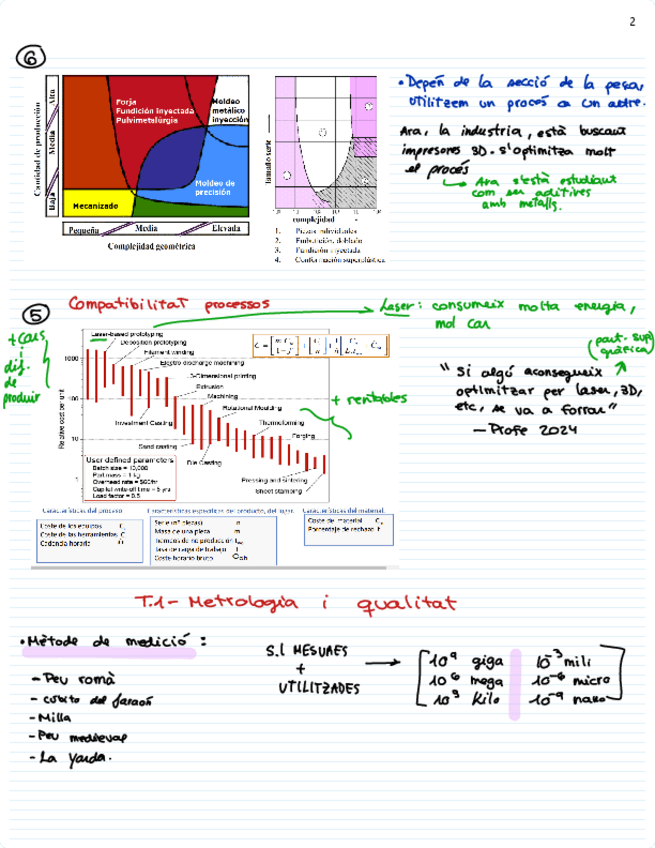 2
6
Cantidad de producción
Alta
Media
Baja
Forja
Fundición inyectada
Pulvimetalúrgia
Moldeo
metálico
inyección
Moldeo de
precisión
Mecanizado
Pequeña
Media
Elevada
Complejidad geométrica
Tamaño serie
complejidad
1. Piezas individuales
2. Embutición, doblado
3. Fundición inyectada
4. Conformación superplástica
• Depèn de la secció de la peça,
utilitzem un procés o un altre.
Ara, la industria, està buscant
impresores 3D. S'optimitza molt
el procés
Ara s'està estudiant
com ser aditives
amb metalls.
5
Compatibilitat processos
Laser: consumeix molta energia,
mol car
+ cars
i
dif.
de
produir
Laser-based prototyping
Deposition prototyping
Filament winding
Electro discharge machining
3-Dimensional printing
Extrusion
Machining
Rotational Moulding
Thermoforming
Forging
Investment Casting
Sand casting
Die Casting
Pressing and sintering
Sheet stamping
Relative cost per unit
1000
100
10
1
User defined parameters
Batch size = 10,000
Part mass = 1 kg
Overhead rate = $60/hr
Capital write-off time = 5 yrs
Load factor = 0.5
+ rentables
(part. sup
gràfica)
" Si algó aconsegueix
optimitzar per laser, 3D,
etc, se va a forrar"
— Profe 2024
Características del proceso
Coste de los equipos
Coste de las herramientas
Cadencia horaria
Características específicas del producto, del lugar.
Serie (nº piezas) n
Masa de una pieza m
Tiempos de no producción
Tasa de carga de trabajo
Coste horario bruto
Características del material.
Coste de material
Porcentaje de rechazo f
T.1- Metrologia i qualitat
• Mètode de medició:
- Peu romà
- cubito del faraón
- Milla
- Peu medieval
- La yarda.
S.I MESURES
+
UTILITZADES
10⁹ giga 10⁻³ mili
10⁶ mega 10⁻⁶ micro
10³ Kilo 10⁻⁹ nano